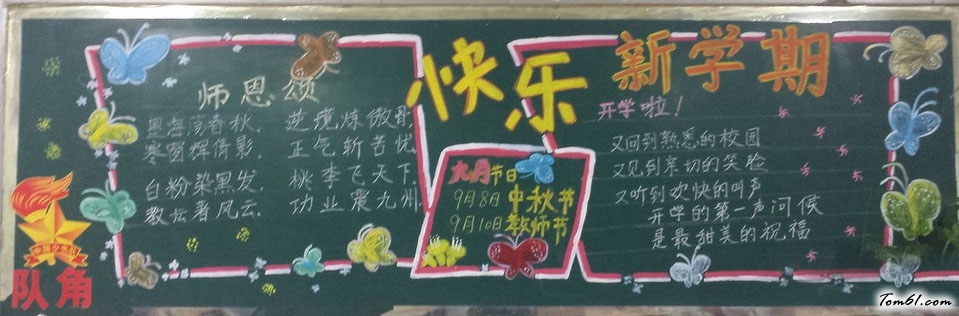 快乐新学期
师恩颂
墨海荡春秋, 逆境炼傲骨,
寒窗辉倩影, 正气斩苦忧,
白粉染黑发, 桃李飞天下,
教坛著风云, 功业震九州
九月节日
9月8日中秋节
9月10日教师节
开学啦!
又回到熟悉的校园
又见到亲切的笑脸
又听到欢快的叫声
开学的第一声问侯
是最甜美的祝福
中国少先队
队角
Tom61.com